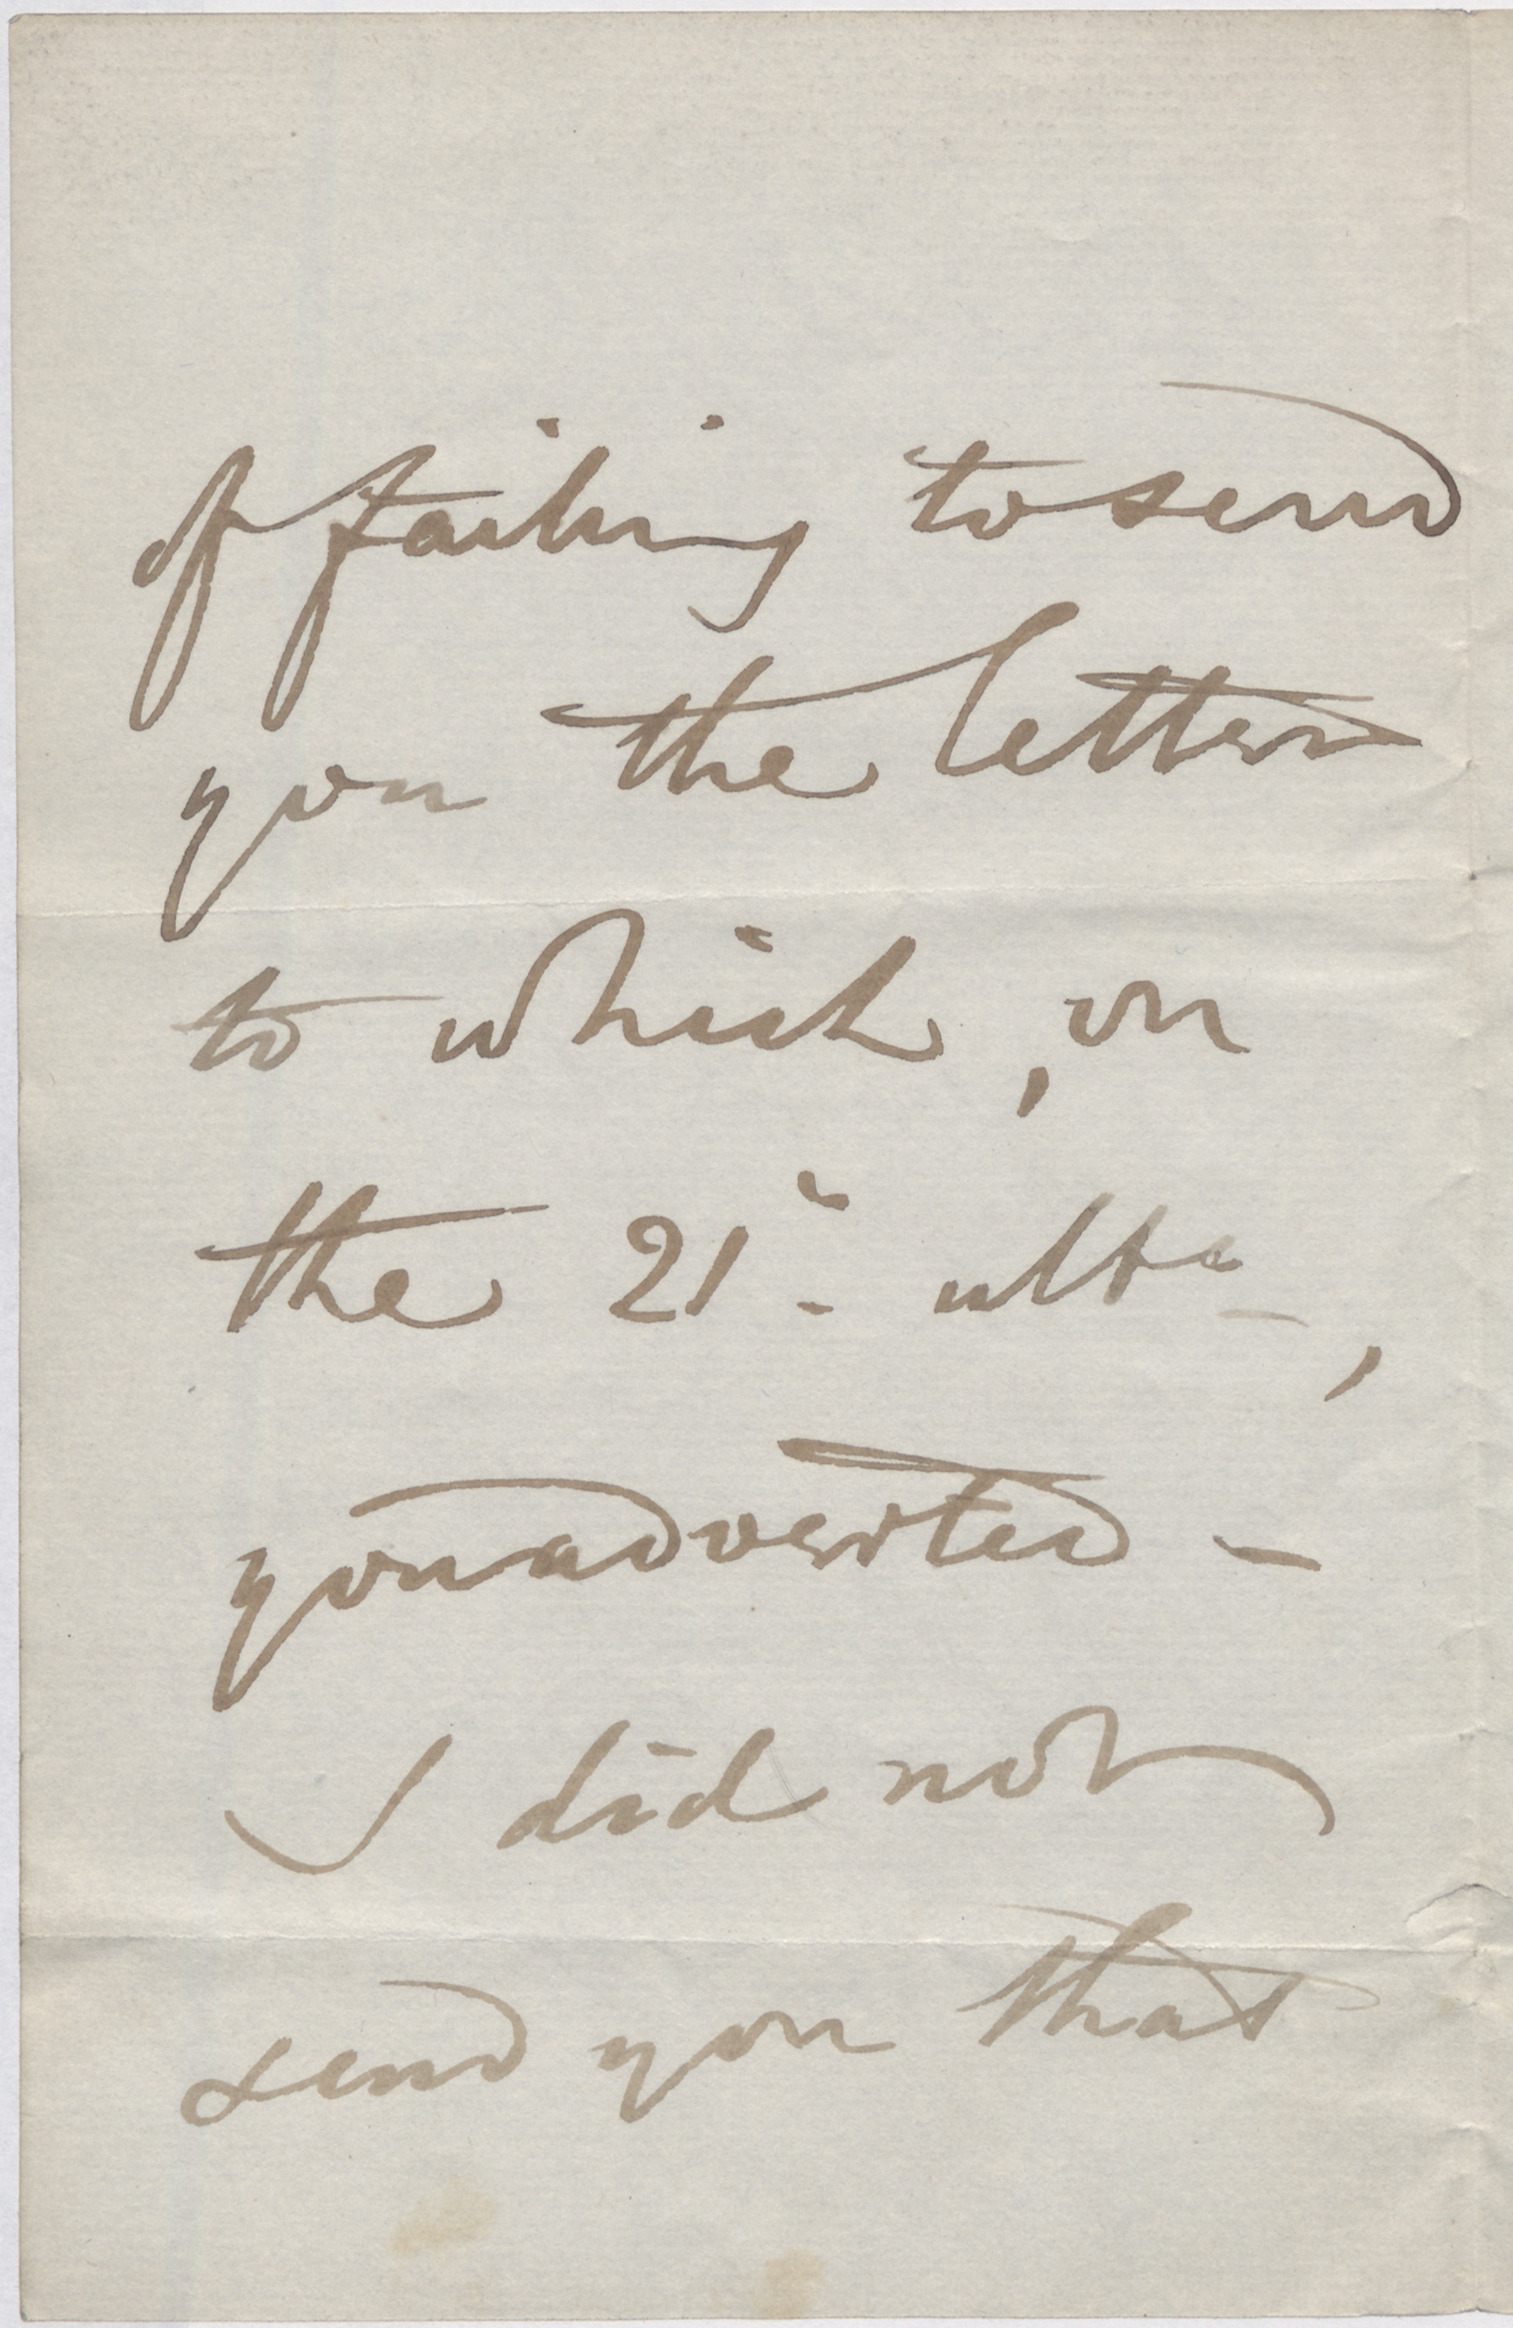 of failing to send
you the letter
to which, on
the 21st. ulto,
you adverted -
I did not
send you that